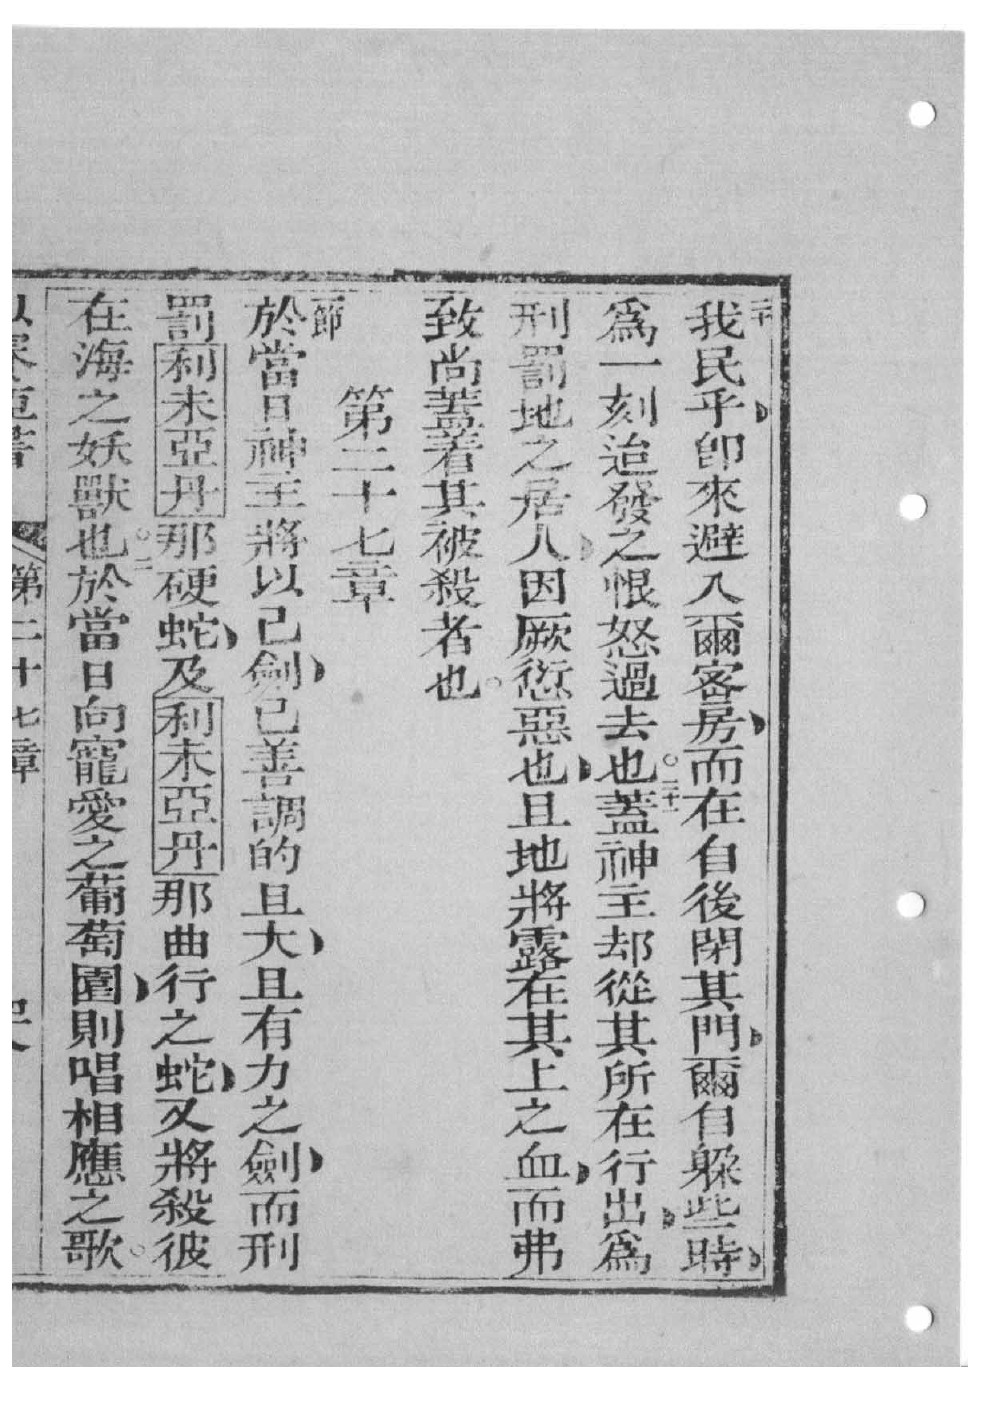 二十我民乎卽來避入爾密房而在自後閉其門爾自躲些時
爲一刻迨發之恨怒過去也。二十一蓋神主却從其所在行出爲
刑罰地之居人因厥愆惡也且地將露在其上之血而弗
致尚蓋着其被殺者也。
第二十七章
一節於當日神主將以己劍己善調的且大且有力之劍而刑
罰利未亞丹那硬蛇及利未亞丹那曲行之蛇又將殺彼
在海之妖獸也。二於當日向寵愛之葡萄園則唱相應之歌。
第二十七章